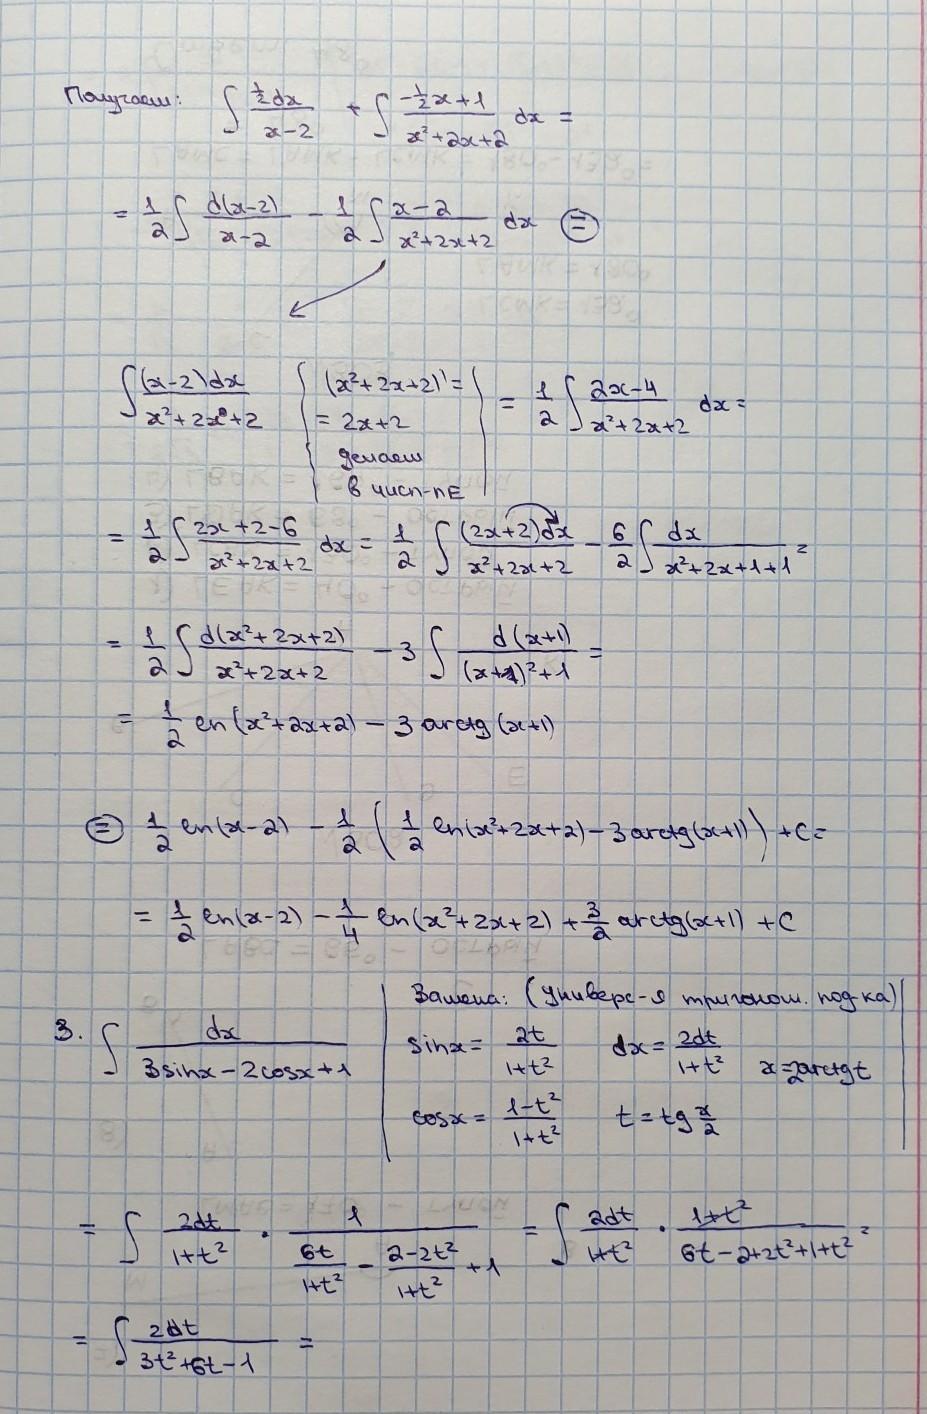 Получаем: ∫ (½dx)/(x-2) + ∫ (-½x+1)/(x²+2x+2) dx =
= 1/2 ∫ d(x-2)/(x-2) - 1/2 ∫ (x-2)/(x²+2x+2) dx ⊜
∫ (x-2)dx/(x²+2x+2) { (x²+2x+2)' = = 2x+2 делаем в числ-ле } = 1/2 ∫ (2x-4)/(x²+2x+2) dx =
= 1/2 ∫ (2x+2-6)/(x²+2x+2) dx = 1/2 ∫ (2x+2)dx/(x²+2x+2) - 6/2 ∫ dx/(x²+2x+1+1) =
= 1/2 ∫ d(x²+2x+2)/(x²+2x+2) - 3 ∫ d(x+1)/((x+1)²+1) =
= 1/2 ln(x²+2x+2) - 3 arctg(x+1)
⊜ 1/2 ln(x-2) - 1/2 (1/2 ln(x²+2x+2) - 3 arctg(x+1)) + C =
= 1/2 ln(x-2) - 1/4 ln(x²+2x+2) + 3/2 arctg(x+1) + C
3. ∫ dx/(3sinx-2cosx+1) | Замена: (универс-я тригоном. под-ка) |
sinx = 2t/(1+t²) dx = 2dt/(1+t²) x=2arctgt
cosx = (1-t²)/(1+t²) t = tg x/2
= ∫ 2dt/(1+t²) · 1/(6t/(1+t²) - (2-2t²)/(1+t²) + 1) = ∫ 2dt/(1+t²) · (1+t²)/(6t-2+2t²+1+t²) =
= ∫ 2dt/(3t²+6t-1) =